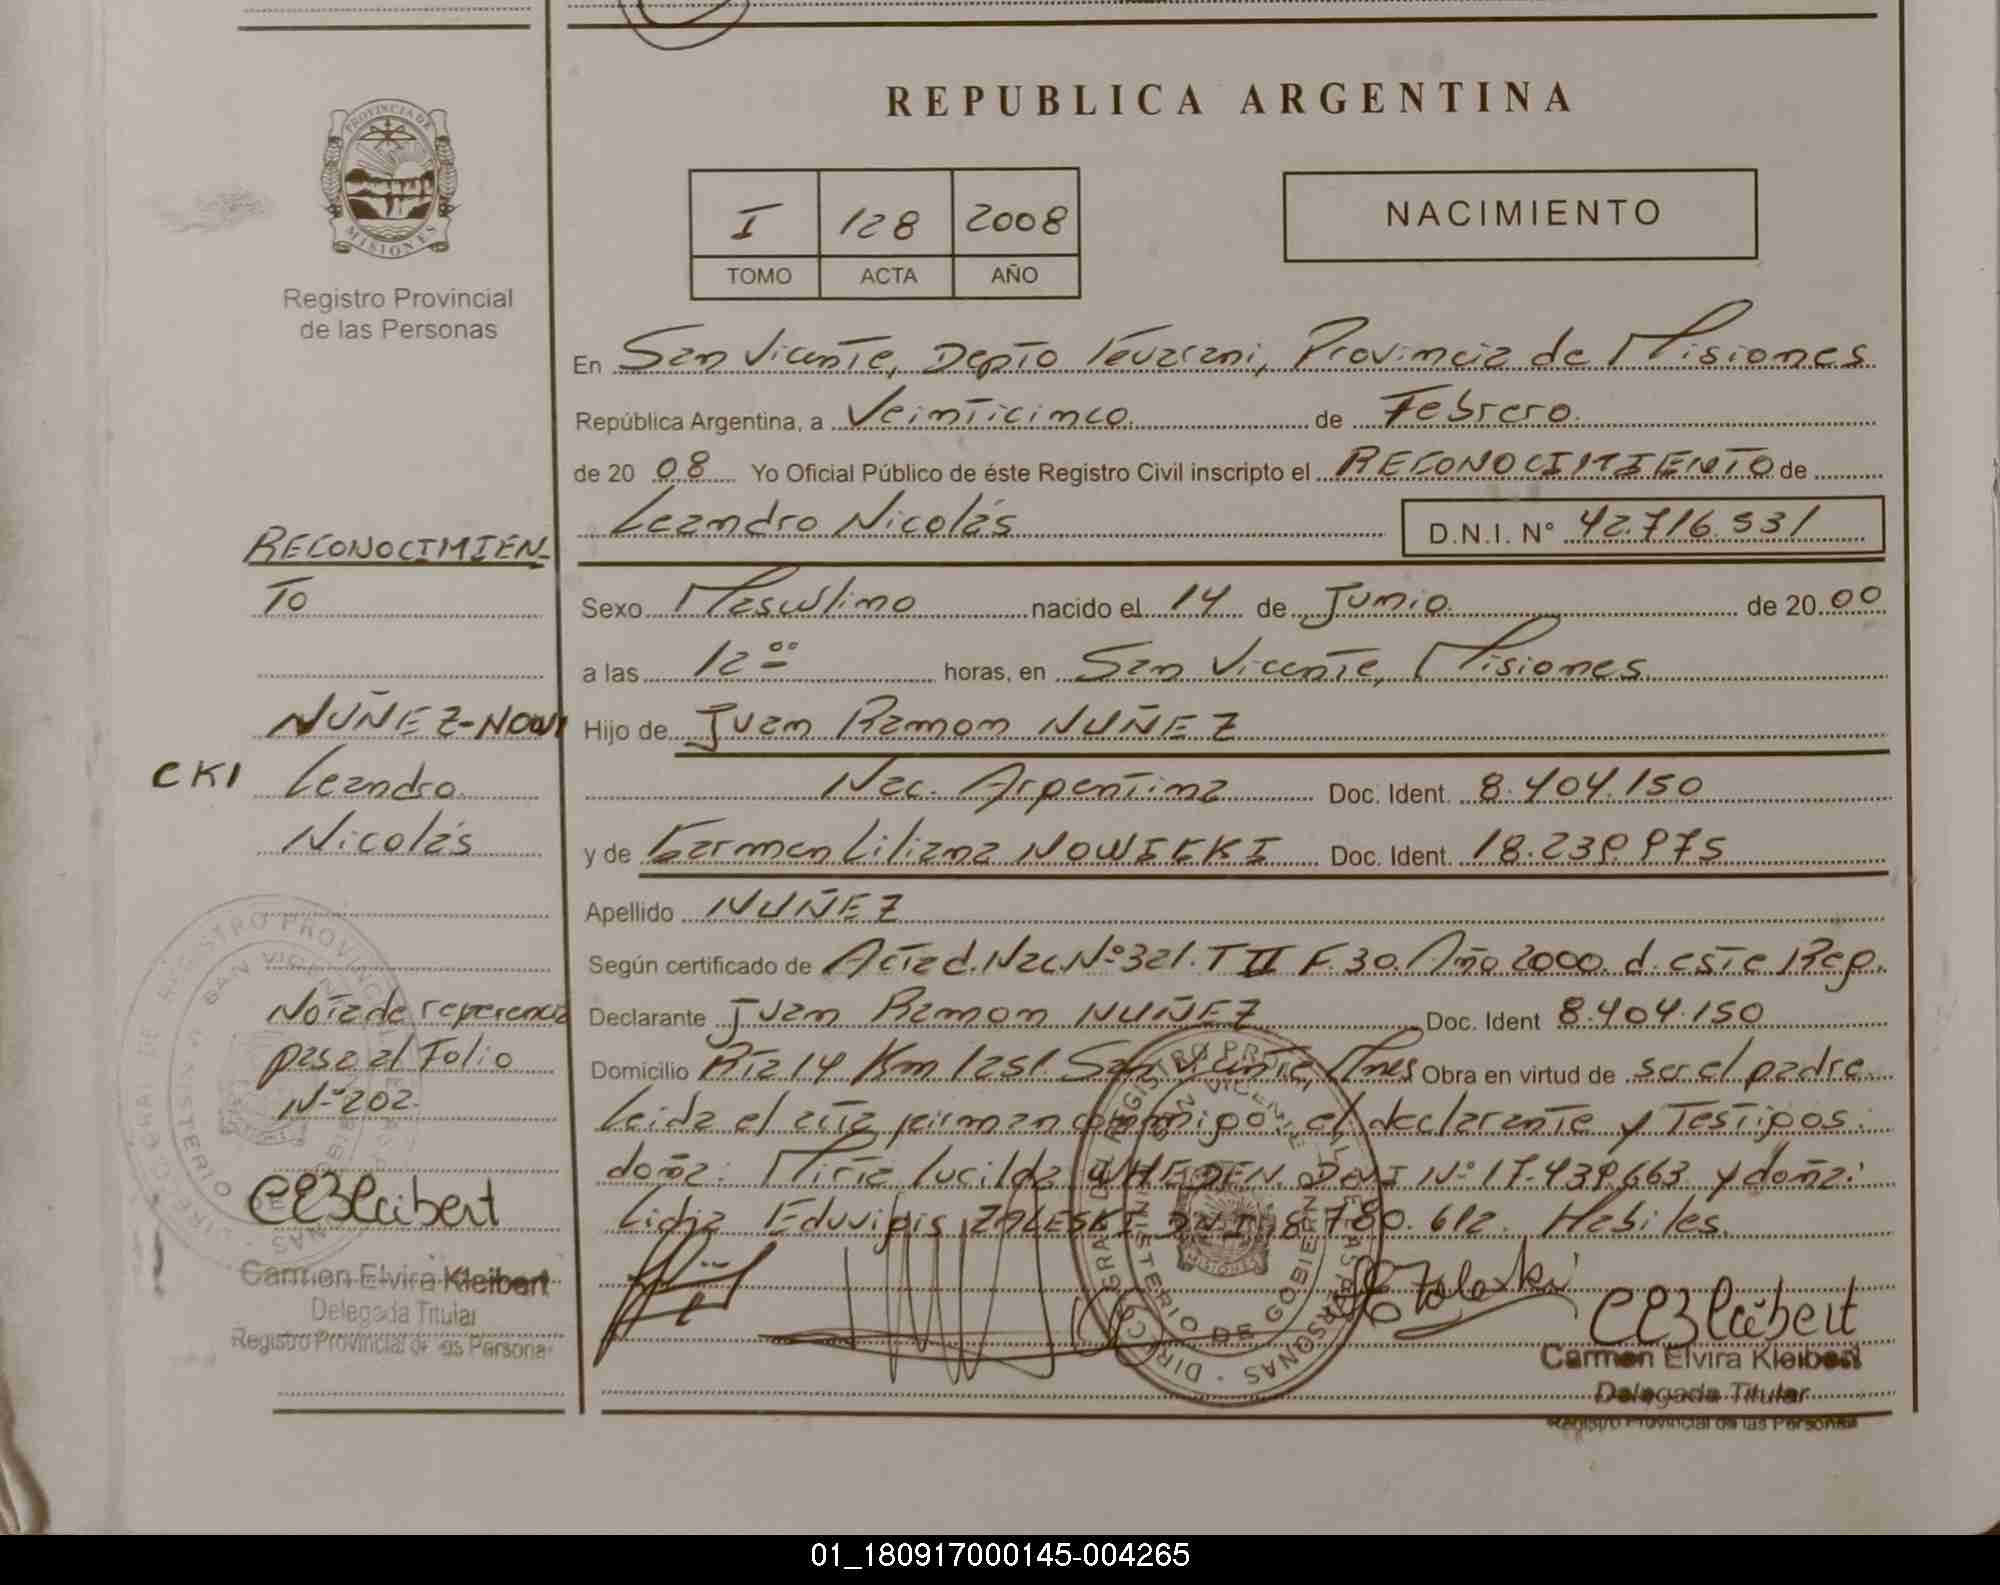 REPUBLICA ARGENTINA
PROVINCIA DE
MISIONES
Registro Provincial
de las Personas
I 128 2008
TOMO ACTA AÑO
NACIMIENTO
En San Vicente, Depto Guarani, Provincia de Misiones
República Argentina, a Veinticinco de Febrero.
de 20 08 Yo Oficial Público de éste Registro Civil inscripto el RECONOCIMIENTO de
Leandro Nicolás D.N.I. N° 42.716.531
Sexo Masculino nacido el 14 de Junio de 20 00
a las 12 00 horas, en San Vicente, Misiones.
Hijo de Juan Ramon NUÑEZ
Nac. Argentina Doc. Ident. 8.404.150
y de Carmen Liliana NOWICKI Doc. Ident. 18.239.975
Apellido NUÑEZ
Según certificado de Acta d. Nac. N° 321. T II F. 30. Año 2000. d. este Reg.
Declarante Juan Ramon NUÑEZ Doc. Ident 8.404.150
Domicilio Rta 14 Km 1251 San Vicente, Mnes Obra en virtud de ser el padre.
Leida el acta firman conmigo, el declarante y Testigos:
doña: Mirta Lucilda DNI N° 17.439.663 y doña:
Lidia Eduvigis ZALESKI DNI 18.780.612. Habiles.
RECONOCIMIEN-
TO
NUÑEZ-NOWI
CKI Leandro
Nicolás
Nota de referencia
pasa al Folio
N° 202.
CEKleibert
Carmen Elvira Kleibert
Delegada Titular
Registro Provincial de las Personas
EZaleski
CEKleibert
Carmen Elvira Kleibert
Delegada Titular
Registro Provincial de las Personas
01_180917000145-004265